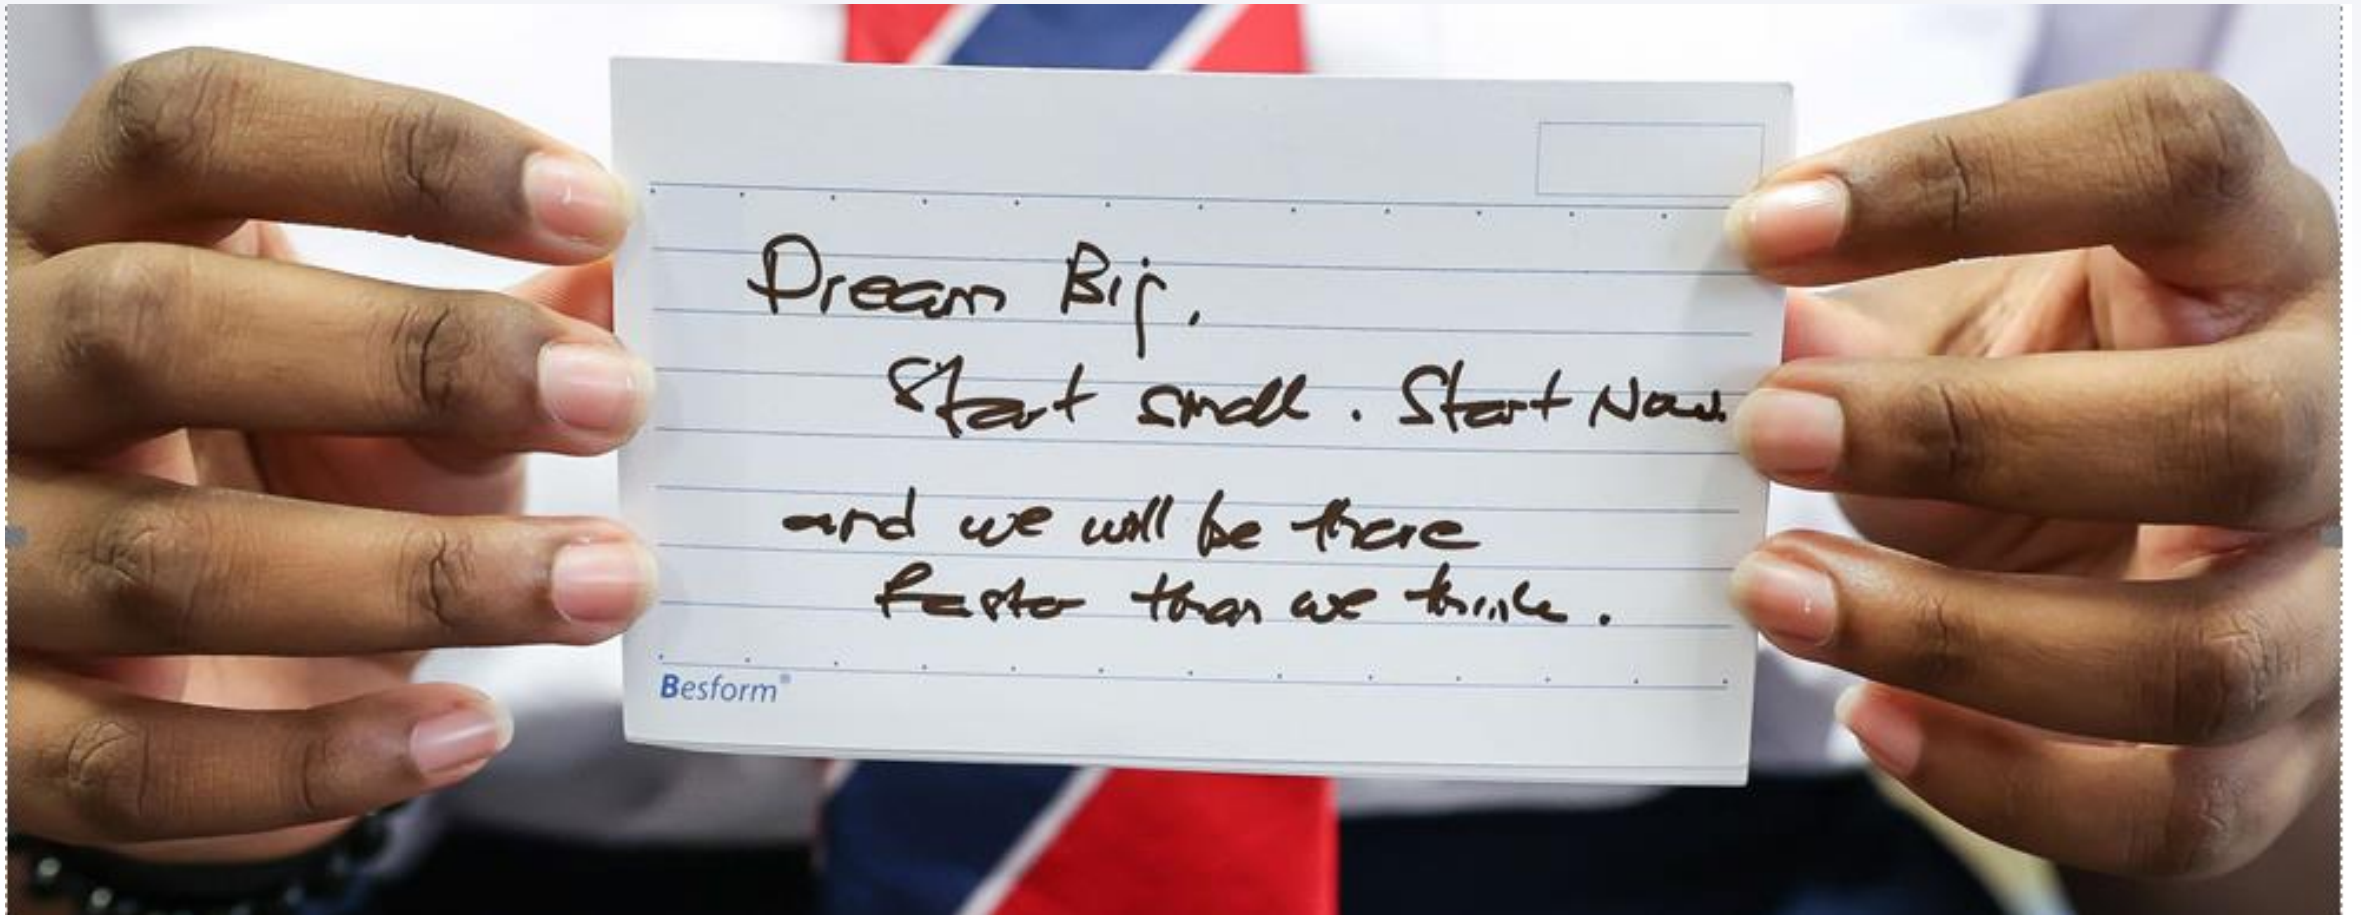 Dream Big.
Start small. Start Now.
and we will be there
faster than we think.
Besform®